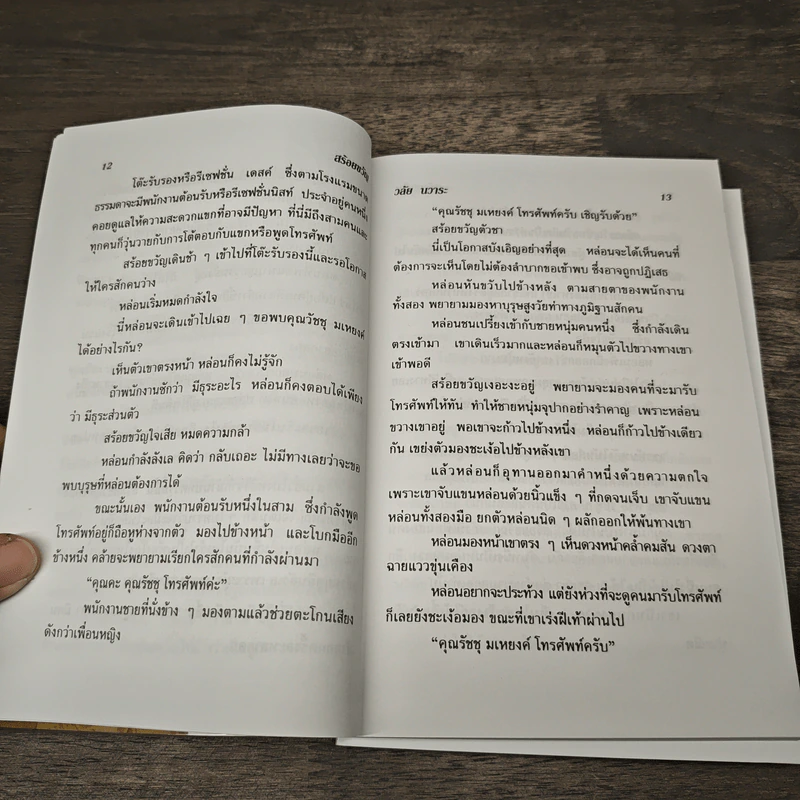 12
สร้อยขวัญ
โต๊ะรับรองหรือรีเซฟชั่น เดสค์ ซึ่งตามโรงแรมขนาด
ธรรมดาจะมีพนักงานต้อนรับหรือรีเซฟชั่นนิสท์ ประจำอยู่คนหนึ่ง
คอยดูแลให้ความสะดวกแขกที่อาจมีปัญหา ที่นี่มีถึงสามคนและ
ทุกคนก็วุ่นวายกับการโต้ตอบกับแขกหรือพูดโทรศัพท์
สร้อยขวัญเดินช้า ๆ เข้าไปที่โต๊ะรับรองนี้และรอโอกาส
ให้ใครสักคนว่าง
หล่อนเริ่มหมดกำลังใจ
นี่หล่อนจะเดินเข้าไปเฉย ๆ ขอพบคุณรัชชุ มเหยงค์
ได้อย่างไรกัน?
เห็นตัวเขาตรงหน้า หล่อนก็คงไม่รู้จัก
ถ้าพนักงานซักว่า มีธุระอะไร หล่อนก็คงตอบได้เพียง
ว่า มีธุระส่วนตัว
สร้อยขวัญใจเสีย หมดความกล้า
หล่อนกำลังลังเล คิดว่า กลับเถอะ ไม่มีทางเลยว่าจะขอ
พบบุรุษที่หล่อนต้องการได้
ขณะนั้นเอง พนักงานต้อนรับหนึ่งในสาม ซึ่งกำลังพูด
โทรศัพท์อยู่ก็ถือหูห่างจากตัว มองไปข้างหน้า และโบกมืออีก
ข้างหนึ่ง คล้ายจะพยายามเรียกใครสักคนที่กำลังผ่านมา
“คุณคะ คุณรัชชุ โทรศัพท์ค่ะ”
พนักงานชายที่นั่งข้าง ๆ มองตามแล้วช่วยตะโกนเสียง
ดังกว่าเพื่อนหญิง
วลัย นวาระ
13
“คุณรัชชุ มเหยงค์ โทรศัพท์ครับ เชิญรับด้วย”
สร้อยขวัญตัวชา
นี่เป็นโอกาสบังเอิญอย่างที่สุด หล่อนจะได้เห็นคนที่
ต้องการจะเห็นโดยไม่ต้องลำบากขอเข้าพบ ซึ่งอาจถูกปฏิเสธ
หล่อนหันขวับไปข้างหลัง ตามสายตาของพนักงาน
ทั้งสอง พยายามมองหาบุรุษสูงวัยท่าทางภูมิฐานสักคน
หล่อนชนเปรี้ยงเข้ากับชายหนุ่มคนหนึ่ง ซึ่งกำลังเดิน
ตรงเข้ามา เขาเดินเร็วมากและหล่อนก็หมุนตัวไปขวางทางเขา
เข้าพอดี
สร้อยขวัญเงอะงะอยู่ พยายามจะมองคนที่จะมารับ
โทรศัพท์ให้ทัน ทำให้ชายหนุ่มจุปากอย่างรำคาญ เพราะหล่อน
ขวางเขาอยู่ พอเขาจะก้าวไปข้างหนึ่ง หล่อนก็ก้าวไปข้างเดียว
กัน เขย่งตัวมองชะเง้อไปข้างหลังเขา
แล้วหล่อนก็อุทานออกมาคำหนึ่งด้วยความตกใจ
เพราะเขาจับแขนหล่อนด้วยนิ้วแข็ง ๆ ที่กดจนเจ็บ เขาจับแขน
หล่อนทั้งสองมือ ยกตัวหล่อนนิด ๆ ผลักออกให้พ้นทางเขา
หล่อนมองหน้าเขาตรง ๆ เห็นดวงหน้าคล้ำคมสัน ดวงตา
ฉายแววขุ่นเคือง
หล่อนอยากจะประท้วง แต่ยังห่วงที่จะดูคนมารับโทรศัพท์
ก็เลยยังชะเง้อมอง ขณะที่เขาเร่งฝีเท้าผ่านไป
“คุณรัชชุ มเหยงค์ โทรศัพท์ครับ”